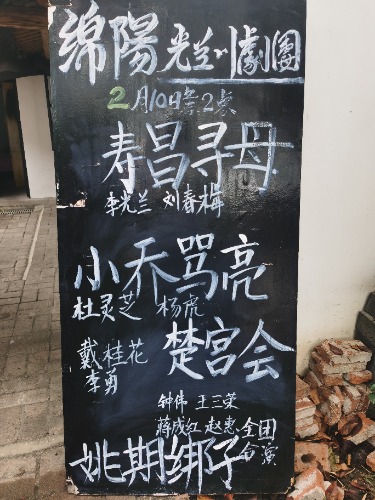 绵陽光兰川劇團
2月10日条2点
寿昌寻母
李光兰 刘春梅
小乔骂亮
杜灵芝 杨虎
戴桂花 楚宫会
李勇
钟伟 王三荣
蒋成红 赵惠 全团
合演
姚期绑子